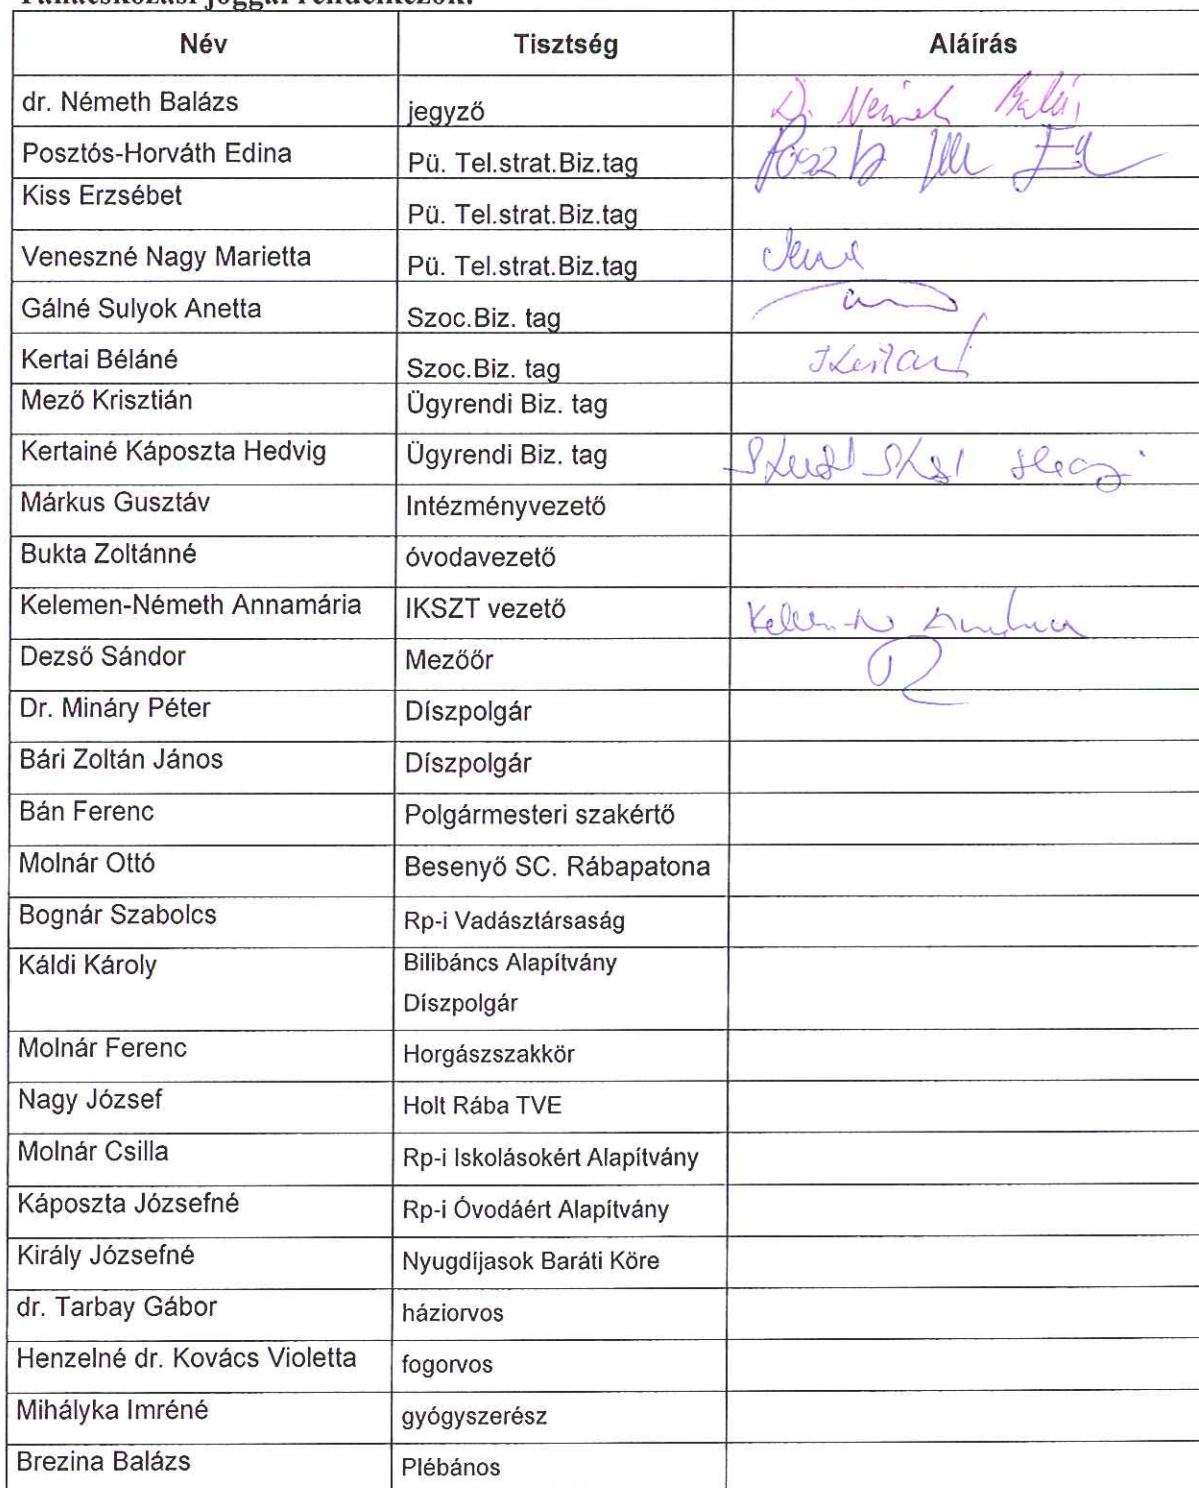 Tanácskozási joggal rendelkezők:
Név Tisztség Aláírás
dr. Németh Balázs jegyző Dr. Németh Balázs
Posztós-Horváth Edina Pü. Tel.strat.Biz.tag
Kiss Erzsébet Pü. Tel.strat.Biz.tag
Veneszné Nagy Marietta Pü. Tel.strat.Biz.tag
Gálné Sulyok Anetta Szoc.Biz. tag
Kertai Béláné Szoc.Biz. tag
Mező Krisztián Ügyrendi Biz. tag
Kertainé Káposzta Hedvig Ügyrendi Biz. tag
Márkus Gusztáv Intézményvezető
Bukta Zoltánné óvodavezető
Kelemen-Németh Annamária IKSZT vezető
Dezső Sándor Mezőőr
Dr. Mináry Péter Díszpolgár
Bári Zoltán János Díszpolgár
Bán Ferenc Polgármesteri szakértő
Molnár Ottó Besenyő SC. Rábapatona
Bognár Szabolcs Rp-i Vadásztársaság
Káldi Károly Bilibáncs Alapítvány
Díszpolgár
Molnár Ferenc Horgászszakkör
Nagy József Holt Rába TVE
Molnár Csilla Rp-i Iskolásokért Alapítvány
Káposzta Józsefné Rp-i Óvodáért Alapítvány
Király Józsefné Nyugdíjasok Baráti Köre
dr. Tarbay Gábor háziorvos
Henzelné dr. Kovács Violetta fogorvos
Mihályka Imréné gyógyszerész
Brezina Balázs Plébános